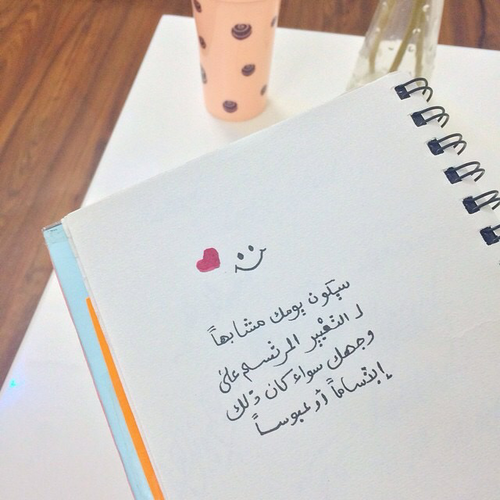 سيكون يومك مشابهاً
لـ التغيير المرتسم على
وجهك سواء كان ذلك
إبتساماً أو عبوساً